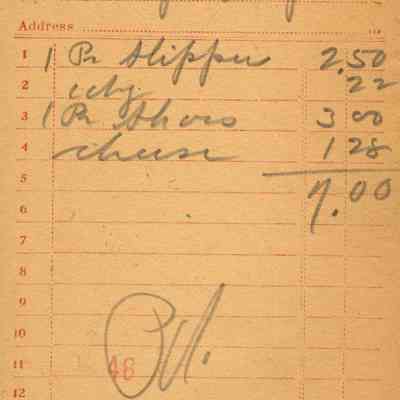 Address
1 1 Pr Slipper 2.50
2 22
3 1 Pr Shoes 3 00
4 cheese 1 28
5 7.00
6
7
8
9
10
11 46
12